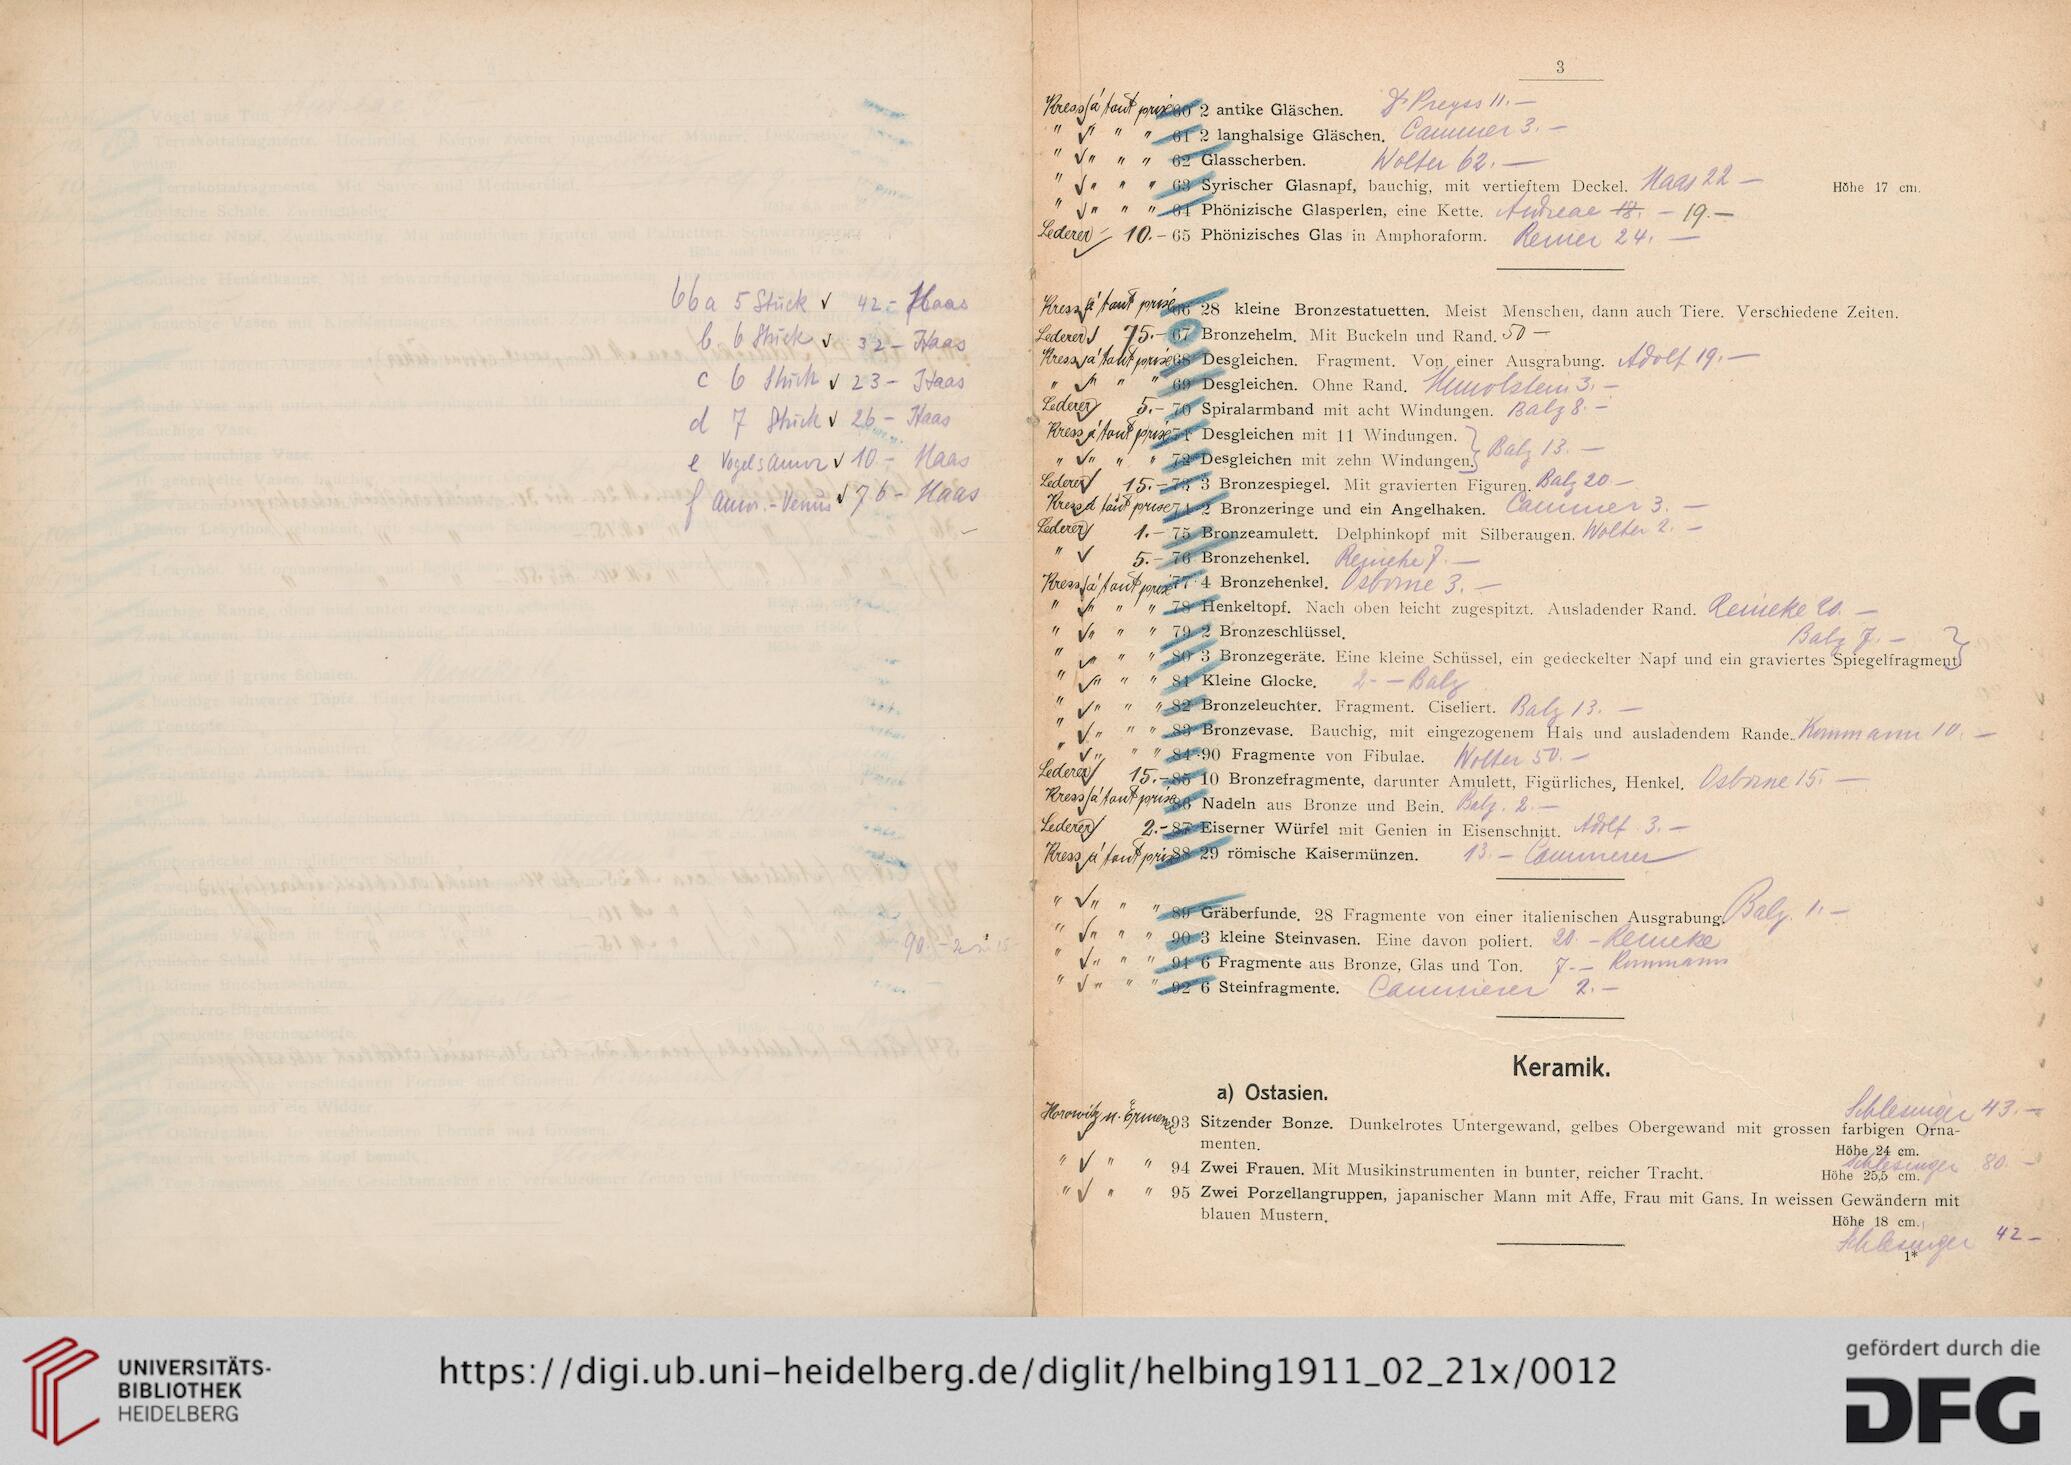 66a 5 Stück √ 42.- Haas
b 6 Stück √ 32- Haas
c 6 Stück √ 23- Haas
d 7 Stück √ 26- Haas
e Vogel s Amor √ 10- Haas
f Amor.-Venus √ 76- Haas
3
Kress √ á tout prix 60 2 antike Gläschen. Dr Preyss 11.-
" √ " " " 61 2 langhalsige Gläschen. Cammer 3.-
" √ " " " 62 Glasscherben. Wolter 62.-
" √ " " " 63 Syrischer Glasnapf, bauchig, mit vertieftem Deckel. Haas 22- Höhe 17 cm.
" √ " " " 64 Phönizische Glasperlen, eine Kette. Andreae 18.- 19.-
Lederer √ 10.- 65 Phönizisches Glas in Amphoraform. Reiner 24.-
Kress √ á tout prix 66 28 kleine Bronzestatuetten. Meist Menschen, dann auch Tiere. Verschiedene Zeiten.
Lederer √ 75.- 67 Bronzehelm. Mit Buckeln und Rand. 50-
Kress √ á tout prix 68 Desgleichen. Fragment. Von einer Ausgrabung. Adolf 19.-
" √ " " " 69 Desgleichen. Ohne Rand. Hunolstein 3.-
Lederer √ 5.- 70 Spiralarmband mit acht Windungen. Balz 8.-
Kress √ á tout prix 71 Desgleichen mit 11 Windungen.
" √ " " " 72 Desgleichen mit zehn Windungen. Balz 13.-
Lederer √ 15.- 73 3 Bronzespiegel. Mit gravierten Figuren. Balz 20-
Kress √ á tout prix 74 2 Bronzeringe und ein Angelhaken. Cammer 3.-
Lederer √ 1.- 75 Bronzeamulett. Delphinkopf mit Silberaugen. Wolter 2.-
" √ 5.- 76 Bronzehenkel. Reineke 7.-
Kress √ á tout prix 77 4 Bronzehenkel. Osborne 3.-
" √ " " " 78 Henkeltopf. Nach oben leicht zugespitzt. Ausladender Rand. Reineke 20.-
" √ " " " 79 2 Bronzeschlüssel. Balz 7.-
" √ " " " 80 3 Bronzegeräte. Eine kleine Schüssel, ein gedeckelter Napf und ein graviertes Spiegelfragment
" √ " " " 81 Kleine Glocke. 2.- -Balz
" √ " " " 82 Bronzeleuchter. Fragment. Ciseliert. Balz 13.-
" √ " " " 83 Bronzevase. Bauchig, mit eingezogenem Hals und ausladendem Rande. Kommann 10.-
" √ " " " 84 90 Fragmente von Fibulae. Wolter 50.-
Lederer √ 15.- 85 10 Bronzefragmente, darunter Amulett, Figürliches, Henkel. Osborne 15.-
Kress √ á tout prix 86 Nadeln aus Bronze und Bein. Balz. 2.-
Lederer √ 2.- 87 Eiserner Würfel mit Genien in Eisenschnitt. Adolf 3.-
Kress √ á tout prix 88 29 römische Kaisermünzen. 13.- Cammerer
" √ " " " 89 Gräberfunde. 28 Fragmente von einer italienischen Ausgrabung. Balz. 1.-
" √ " " " 90 3 kleine Steinvasen. Eine davon poliert. 20 - Reineke
" √ " " " 91 6 Fragmente aus Bronze, Glas und Ton. 7.- Kommann
" √ " " " 92 6 Steinfragmente. Cammerer 2.-
Keramik.
a) Ostasien.
Schlesinger 43.-
Horowitz u. 93 Sitzender Bonze. Dunkelrotes Untergewand, gelbes Obergewand mit grossen farbigen Orna-
menten. Höhe 24 cm.
Schlesinger 80.-
" √ " " 94 Zwei Frauen. Mit Musikinstrumenten in bunter, reicher Tracht. Höhe 25,5 cm.
" √ " " 95 Zwei Porzellangruppen, japanischer Mann mit Affe, Frau mit Gans. In weissen Gewändern mit
blauen Mustern. Höhe 18 cm.
Schlesinger 42-
1*
UNIVERSITÄTS-
BIBLIOTHEK
HEIDELBERG
https://digi.ub.uni-heidelberg.de/diglit/helbing1911_02_21x/0012
gefördert durch die
DFG